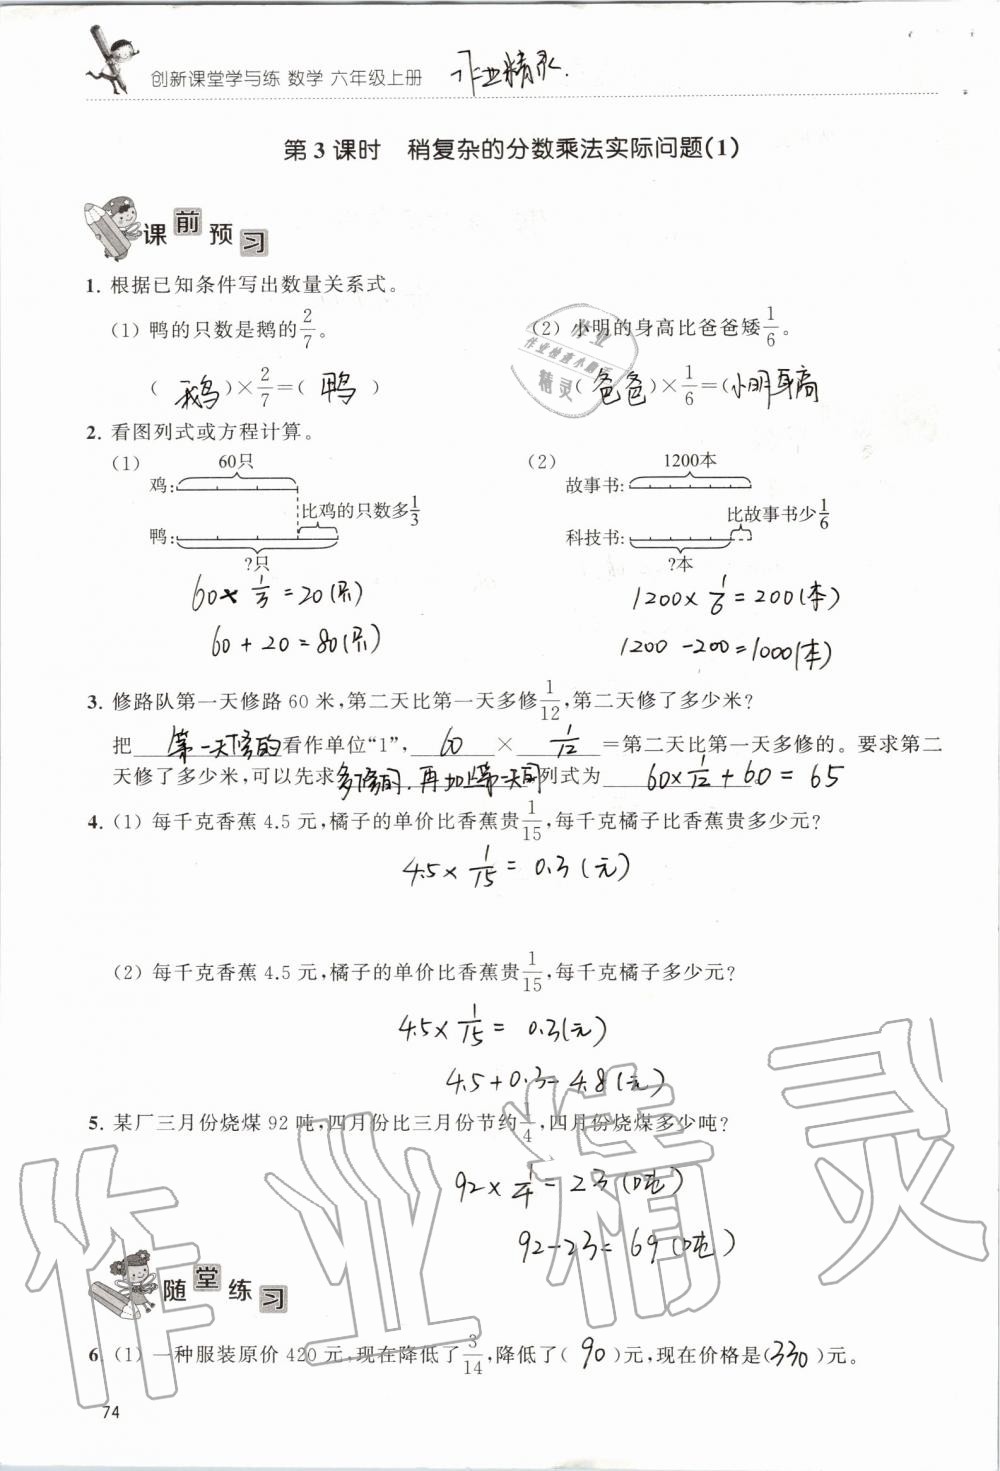 创新课堂学与练 数学 六年级上册 作业精灵.
第 3 课时 稍复杂的分数乘法实际问题(1)
课前预习
1. 根据已知条件写出数量关系式。
(1) 鸭的只数是鹅的2/7。 (2) 小明的身高比爸爸矮1/6。
( 鹅 )×2/7=( 鸭 ) (爸爸)×1/6=(小明身高
2. 看图列式或方程计算。
(1) 60只 (2) 1200本
鸡: 故事书:
比鸡的只数多1/3 比故事书少1/6
鸭: 科技书:
?只 ?本
60×1/3=20(只) 1200×1/6=200(本)
60+20=80(只) 1200-200=1000(本)
3. 修路队第一天修路 60 米,第二天比第一天多修1/12,第二天修了多少米?
把 第一天修的 看作单位“1”, 60 × 1/12 =第二天比第一天多修的。要求第二
天修了多少米,可以先求多修的,再加上第一天的列式为 60×1/12+60=65
4. (1) 每千克香蕉 4.5 元,橘子的单价比香蕉贵1/15,每千克橘子比香蕉贵多少元?
4.5×1/15=0.3(元)
(2) 每千克香蕉 4.5 元,橘子的单价比香蕉贵1/15,每千克橘子多少元?
4.5×1/15= 0.3(元)
4.5+0.3=4.8(元)
5. 某厂三月份烧煤 92 吨,四月份比三月份节约1/4,四月份烧煤多少吨?
92×1/4=23(吨)
92-23=69(吨)
随堂练习
6. (1) 一种服装原价 420 元,现在降低了3/14,降低了( 90 )元,现在价格是(330)元。
74
作业
作业检查小助手
精灵
作业精灵